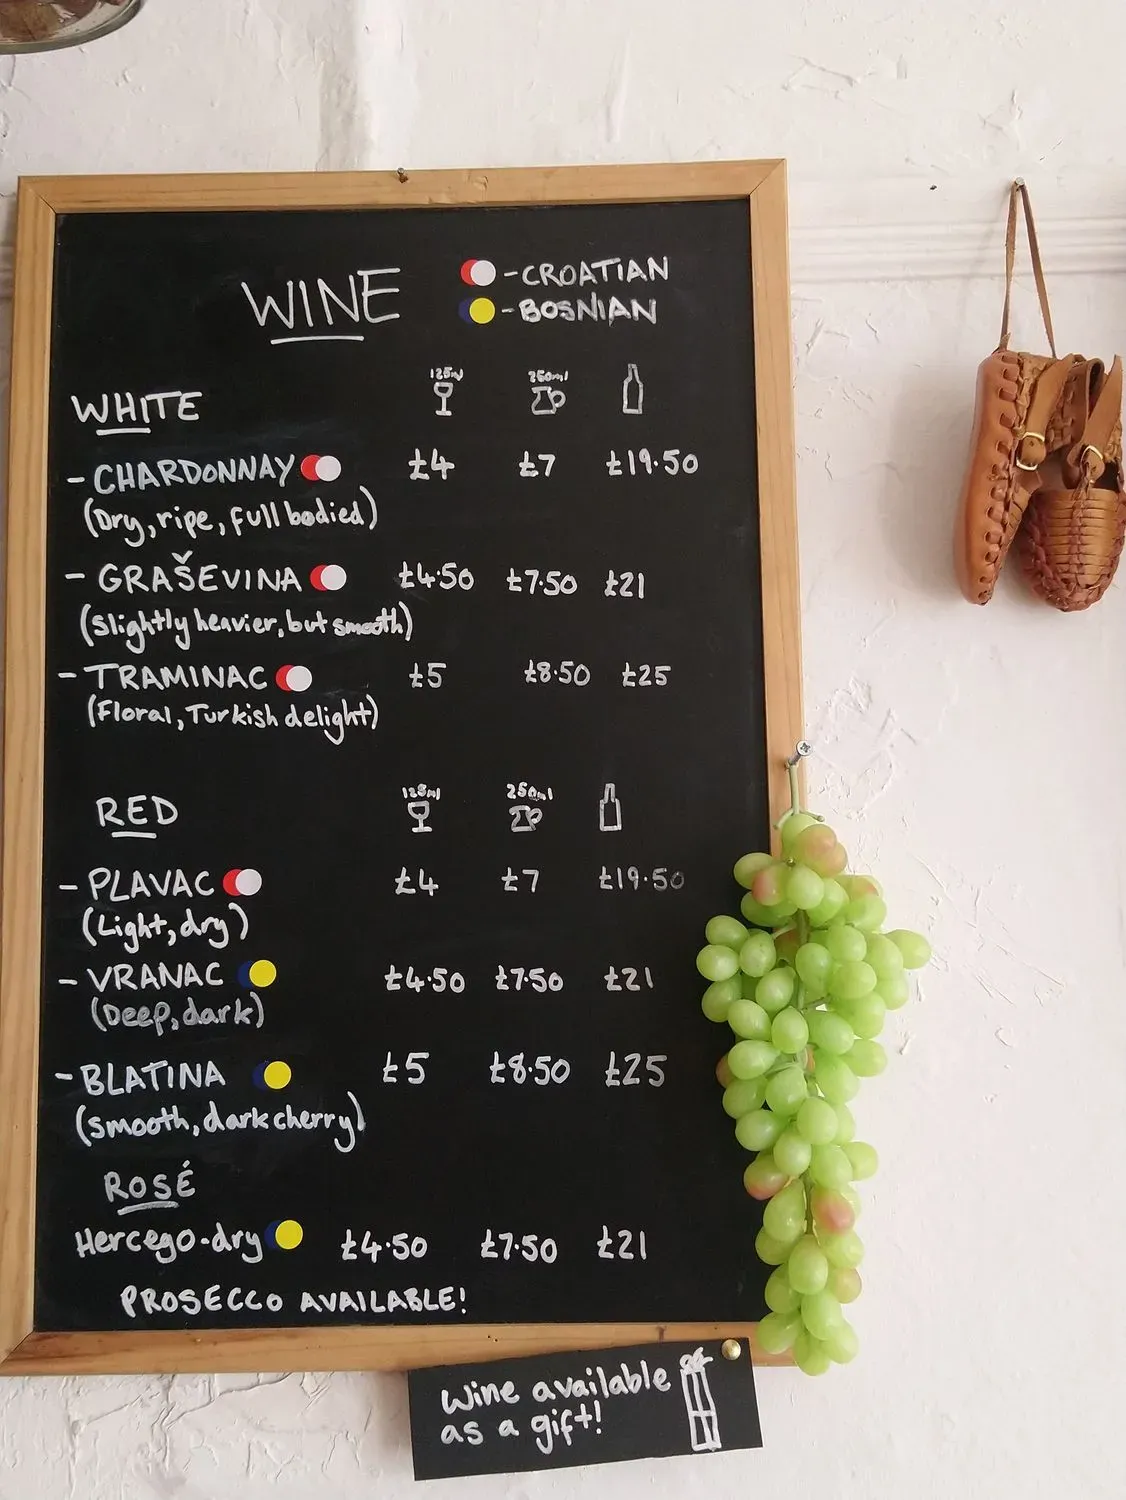 WINE
- CROATIAN
- BOSNIAN
WHITE
125ml 250ml
- CHARDONNAY £4 £7 £19.50
(Dry, ripe, full bodied)
- GRAŠEVINA £4.50 £7.50 £21
(Slightly heavier, but smooth)
- TRAMINAC £5 £8.50 £25
(Floral, Turkish delight)
RED
125ml 250ml
- PLAVAC £4 £7 £19.50
(Light, dry)
- VRANAC £4.50 £7.50 £21
(Deep, dark)
- BLATINA £5 £8.50 £25
(smooth, dark cherry)
ROSÉ
Hercego-dry £4.50 £7.50 £21
PROSECCO AVAILABLE!
Wine available
as a gift!